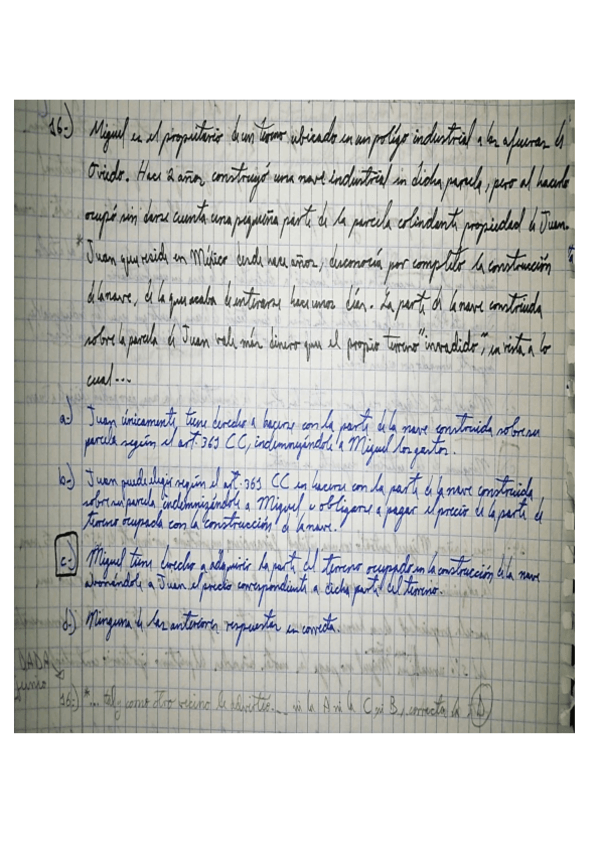 16-) Miguel es el propietario de un terreno ubicado en un polígo industrial a las afueras de
Oviedo. Hace 2 años construyó una nave industrial en dicha parcela, pero al hacerlo
ocupó sin darse cuenta una pequeña parte de la parcela colindante propiedad de Juan.
* Juan que reside en México desde hace años, desconocía por completo la construcción
de la nave, de la que acaba de enterarse hace unos días. La parte de la nave construida
sobre la parcela de Juan vale más dinero que el propio terreno "invadido", en vista a lo
cual...
a-) Juan únicamente tiene derecho a hacerse con la parte de la nave construida sobre su
parcela según el art. 361 CC, indemnizándole a Miguel los gastos.
b-) Juan puede elegir según el art. 361 CC en hacerse con la parte de la nave construida
sobre su parcela indemnizándole a Miguel u obligarse a pagar el precio de la parte de
terreno ocupada con la construcción de la nave.
c-) Miguel tiene derecho a adquirir la parte del terreno ocupado en la construcción de la nave
abonándole a Juan el precio correspondiente a dicha parte del terreno.
d-) Ninguna de las anteriores respuestas es correcta.
junio
16-) *... tal y como otro vecino le advirtió... ni la A ni la C ni B, correcta la D